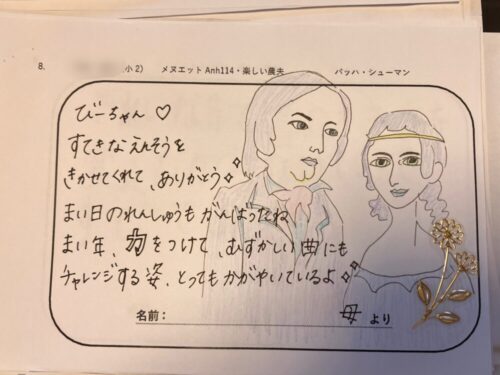 8. 小2) メヌエット Anh114・楽しい農夫 バッハ・シューマン
びーちゃん♡
すてきなえんそうを
きかせてくれて、ありがとう✧
まい日のれんしゅうもがんばったね
まい年、力をつけて、むずかしい曲にも
チャレンジする姿、とってもかがやいているよ✧
名前: 母より